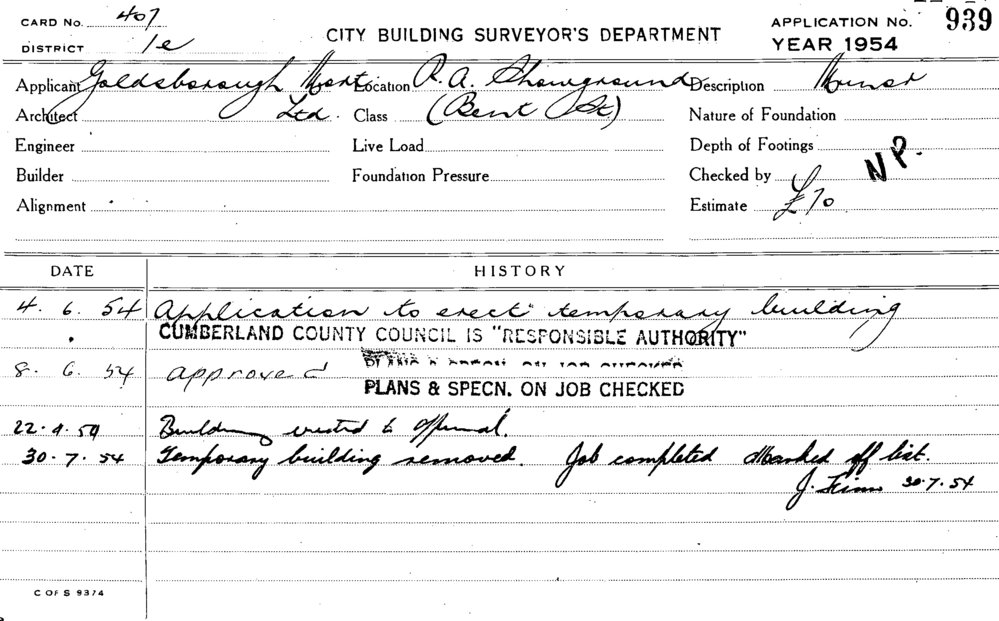 CARD No. 407
DISTRICT 1e
CITY BUILDING SURVEYOR'S DEPARTMENT
APPLICATION No. 939
YEAR 1954
Applicant Goldsborough Mort Location R.A. Showground Description Minor
Architect Ltd. Class (Bent St) Nature of Foundation
Engineer Live Load Depth of Footings
Builder Foundation Pressure Checked by N P.
Alignment Estimate £70
DATE HISTORY
4. 6. 54 Application to erect temporary building
CUMBERLAND COUNTY COUNCIL IS "RESPONSIBLE AUTHORITY"
8. 6. 54 approved
PLANS & SPECN. ON JOB CHECKED
Building erected to approval.
30.7.54 Temporary building removed. Job completed Marked off list.
J. 30.7.54
C OF S 9374